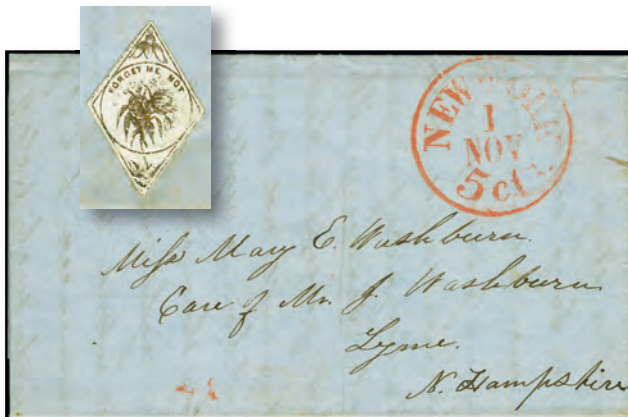 FORGET ME NOT
NEW YORK
1
NOV
5 cts
Miss Mary E. Washburn.
Care of Mr. J. Washburn
Lyme.
N. Hampshire